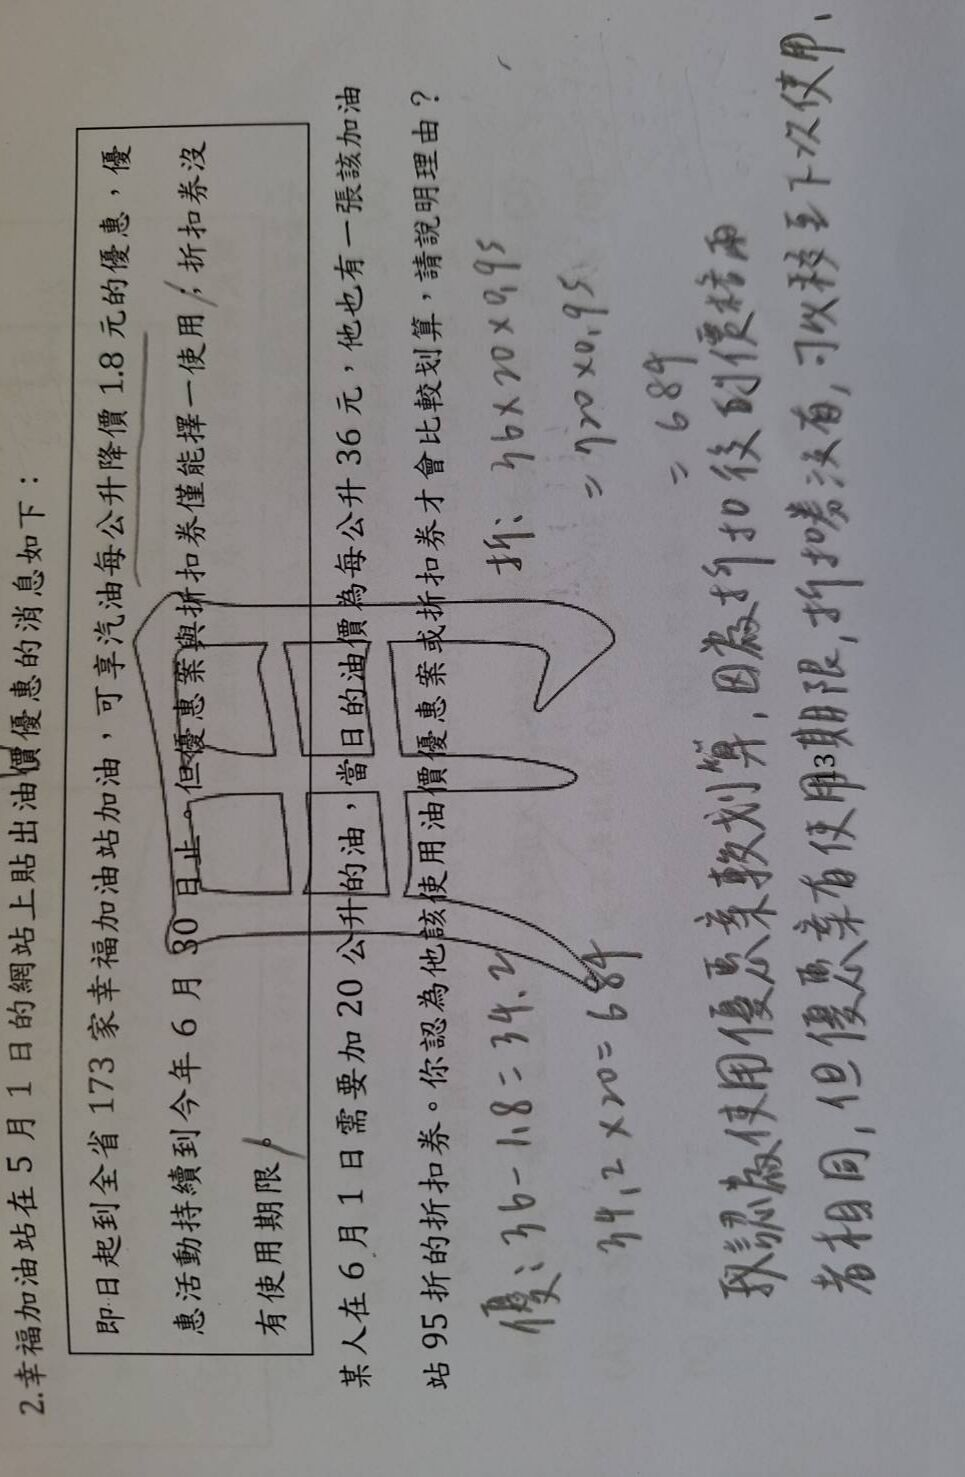 2.幸福加油站在 5 月 1 日的網站上貼出油價優惠的消息如下：
即日起到全省 173 家幸福加油站加油，可享汽油每公升降價 1.8 元的優惠，優
惠活動持續到今年 6 月 30 日止。但優惠案與折扣券僅能擇一使用；折扣券沒
有使用期限。
某人在 6 月 1 日需要加 20 公升的油，當日的油價為每公升 36 元，他也有一張該加油
站 95 折的折扣券。你認為他該使用油價優惠案或折扣券才會比較划算，請說明理由？
優：36-1.8=34.2
34.2×20=684
折：36×20×0.95
=720×0.95
=684
我認為使用優惠案較划算，因為折扣後的價格兩
者相同，但優惠案有使用期限，折扣卷沒有，可以移至下次使用、